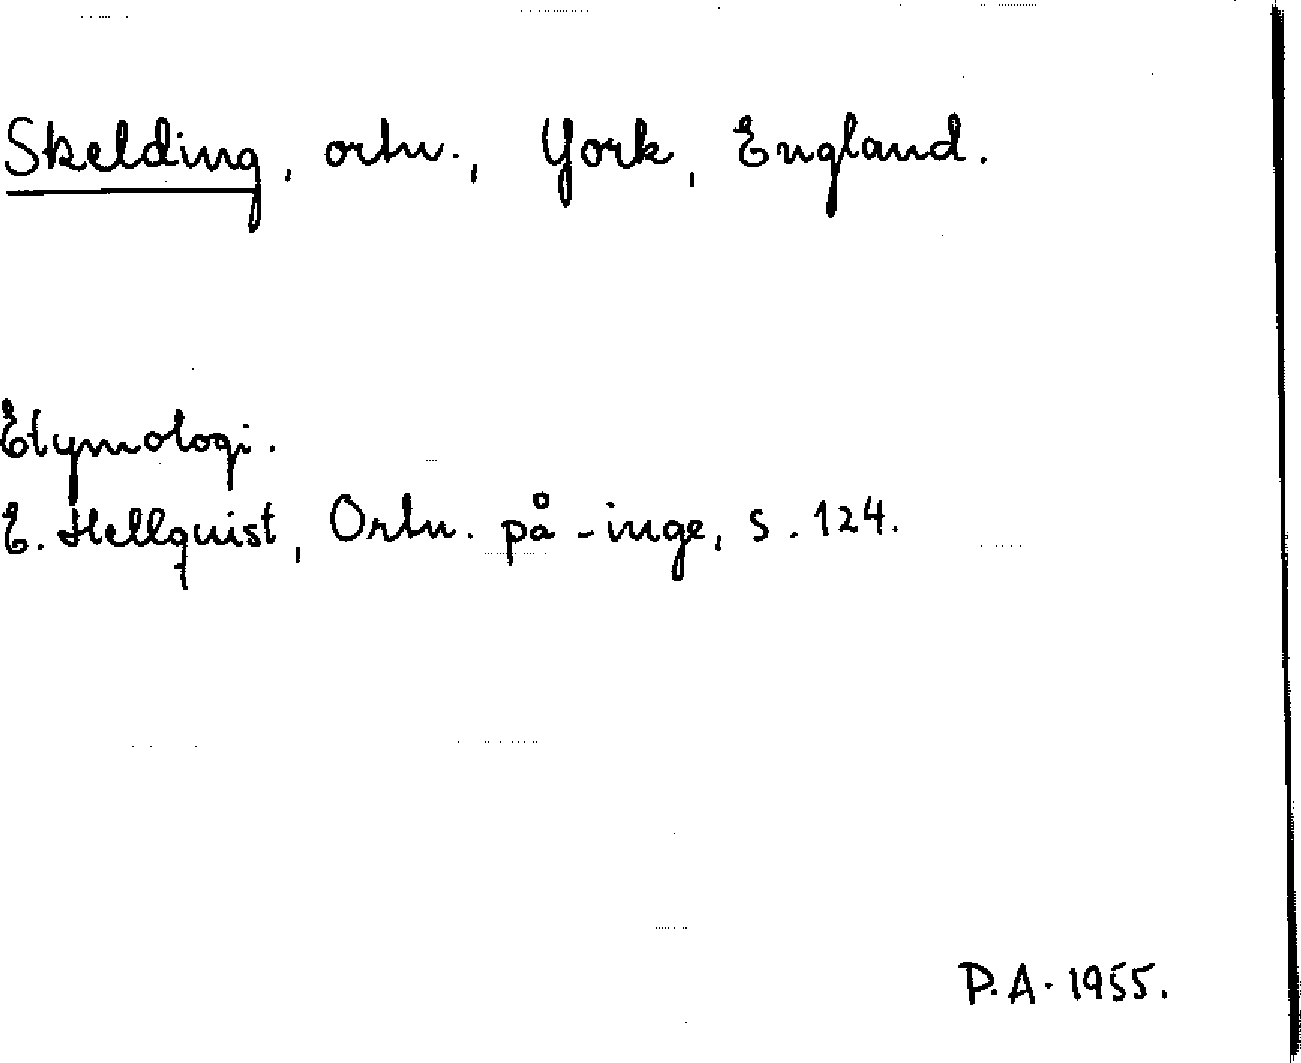 Skelding, ortn., York, England.
Etymologi.
E. Hellquist, Ortn. på -inge, s. 124.
P.A. 1955.